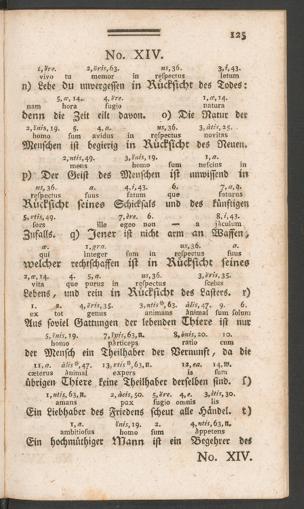 125
No. XIV.
1, ĕre. 2, ŏris, 63. us, 36. 3, i, 43.
vivo tu memor in respectus letum
n) Lebe du unvergessen in Rücksicht des Todes:
5, æ, 14. 4, ĕre. 1, a, 14.
nam hora fugio natura
denn die Zeit eilt davon. o) Die Natur der
2, ĭnis, 19. 5. 4, a. us, 36. 3, ātis, 25.
homo sum avidus in respectus novitas
Menschen ist begierig in Rücksicht des Neuen.
2, ntis, 49. 3, ĭnis, 19. 1, a.
mens homo sum nescius in
p) Der Geist des Menschen ist unwissend in
us, 36. a. 4, i, 43. 6. 7, a, q.
respectus suus fatum que futurus
Rücksicht seines Schicksals und des künftigen
5, rtis, 49. 7, ĕre. 6. 8, i, 43.
sors ille egeo non — a jăculum
Zufalls. q) Jener ist nicht arm an Waffen,
æ. 1, gra. us, 36. a.
qui integer sum in respectus suus
welcher rechtschaffen ist in Rücksicht seines
2, æ, 14. 4. 5, a. us, 36. 3, ĕris, 35.
vita que purus in respectus scelus
Lebens, und rein in Rücksicht des Lasters. r)
1. a. 4, ĕris, 35. 3, ntis, 63. ālis, 47. 9. 6.
ex tot genus animans animal sum solum
Aus soviel Gattungen der lebenden Thiere ist nur
5, ĭnis, 19. 7, ĭpis, 63, n. 8, ōnis, 20. 10.
homo părticeps ratio cum
der Mensch ein Theilhaber der Vernunft, da die
11, a. ālis, 47. 13, rtis, 63, n. 12, ea. 14, m.
cæterus ănimal expers is sum
übrigen Thiere keine Theilhaber derselben sind. ſ)
1, ntis, 63, n. 2, ācis, 50. 5, ĕre. 4, e. 3, ītis, 30.
amans pax fugio omnis lis
Ein Liebhaber des Friedens scheut alle Händel. t)
1, a. ĭnis, 19. 2. 4, ntis, 63, n.
ambitiosus homo sum ăppetens
Ein hochmüthiger Mann ist ein Begehrer des
No. XIV.